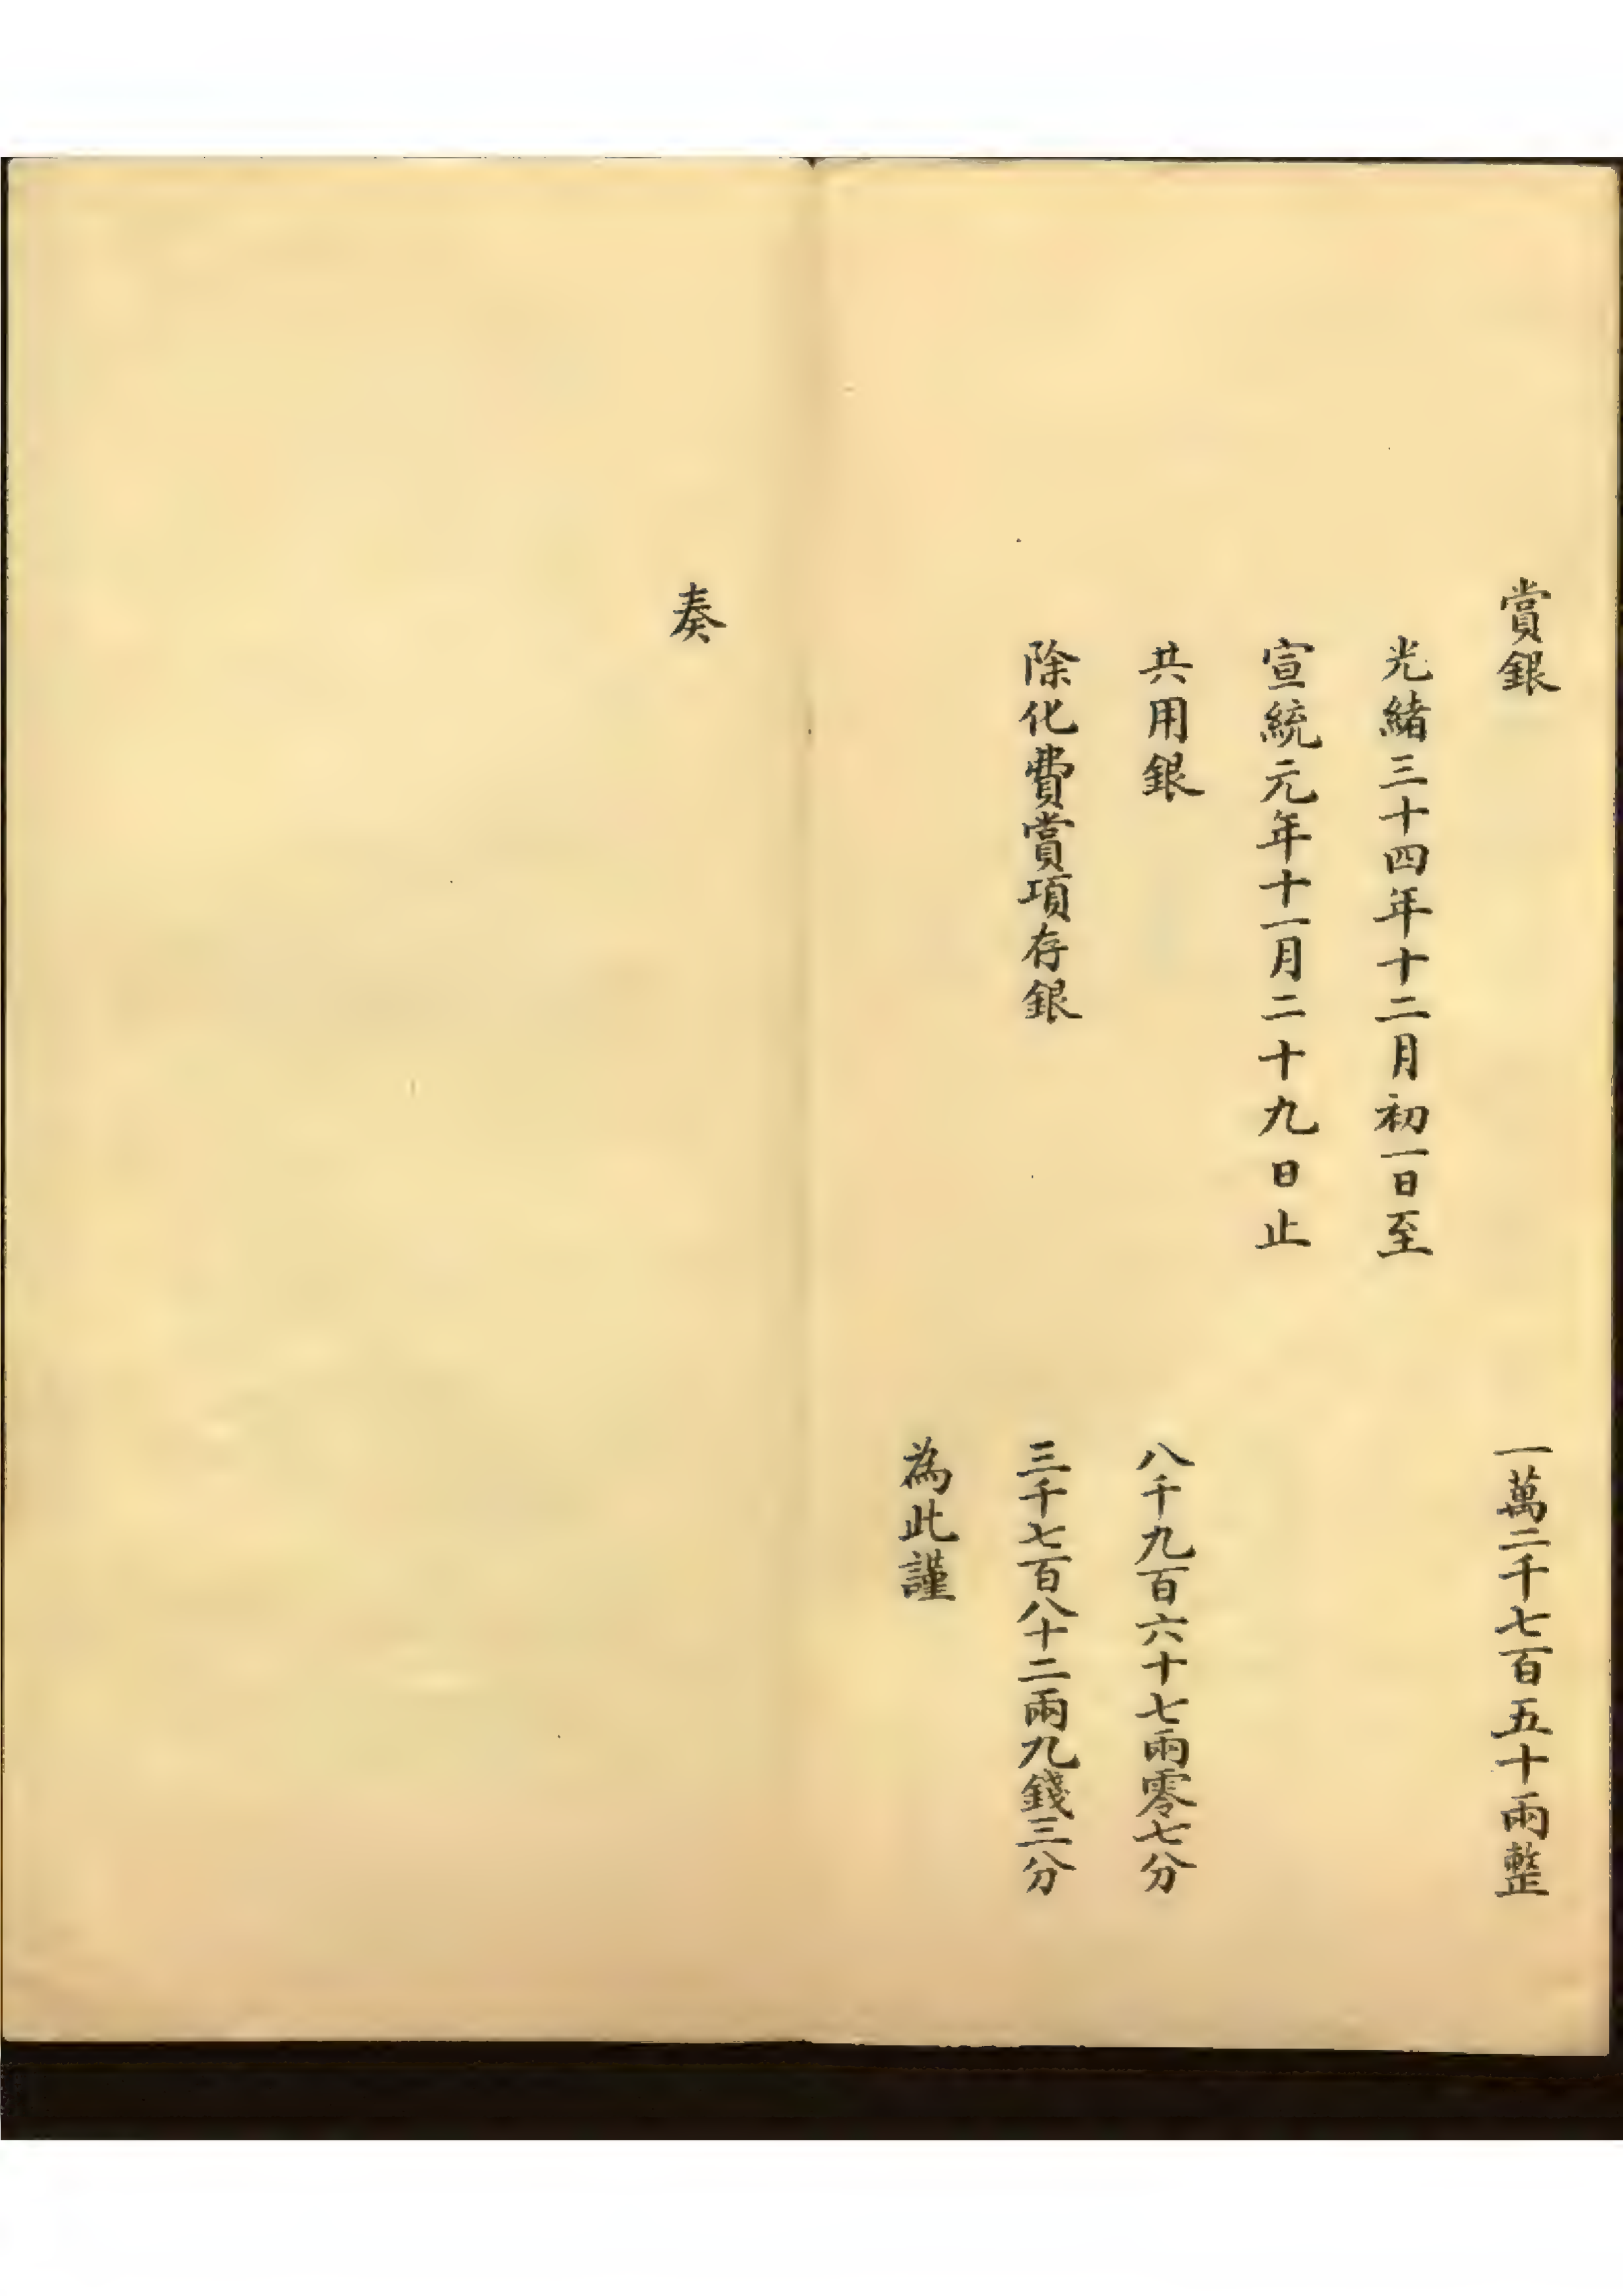 賞銀 一萬二千七百五十兩整
光緒三十四年十二月初一日至
宣統元年十一月二十九日止
共用銀 八千九百六十七兩零七分
除化費賞項存銀 三千七百八十二兩九錢三分
為此謹
奏